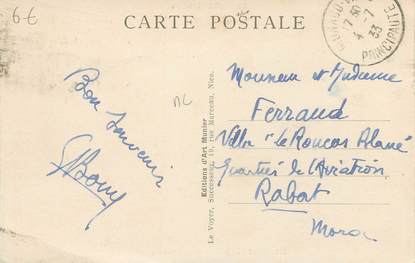 6€
CARTE POSTALE
17 30
4-7
33
PRINCIPAUTÉ
Bon Souvenir
MC
Editions d'Art Munier
Le Voyer, Successeur, 10, rue Marceau, Nice.
Monsieur et Madame
Ferraud
Villa "le Roucas Blanc"
Quartier de l'Aviation
Rabat
Maroc